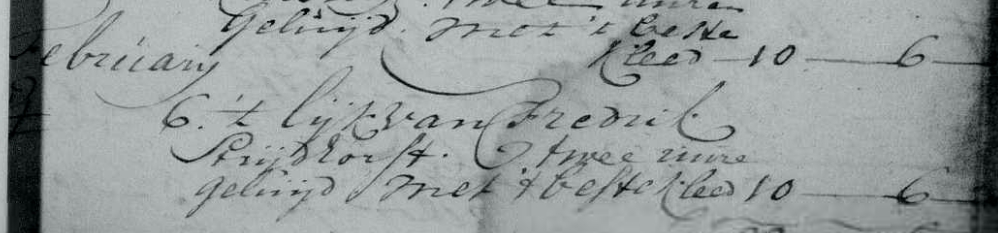 twee uuren
geluijd. met 't beste
kleed - 10 - 6 -
Februarij
6. 't lijk van Fredrik
Strijdhorst. twee uure
geluijd met 't beste kleed 10 - 6